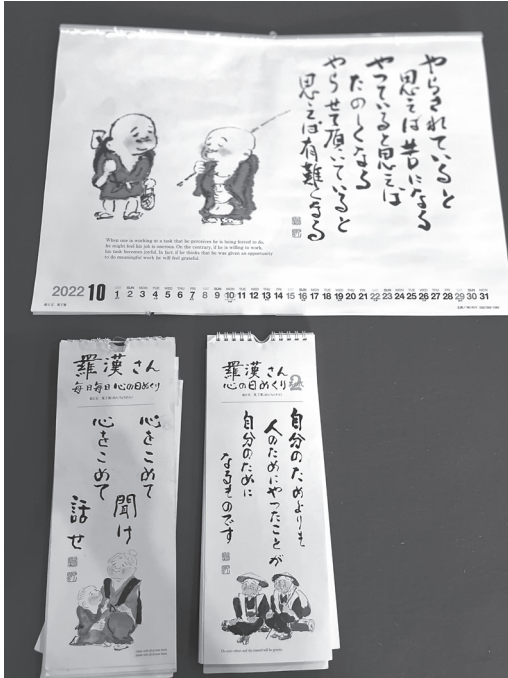 やらされていると
思えば苦になる
やっていると思えば
たのしくなる
やらせて頂いていると
思えば有難くなる
When one is working at a task that he perceives he is being forced to do,
he might feel his job is onerous. On the contrary, if he is willing to work,
his task becomes joyful. In fact, if he thinks that he was given an opportunity
to do meaningful work he will feel grateful.
2022 10
SAT SUN MON TUE WED THU FRI SAT SUN MON TUE WED THU FRI SAT SUN MON TUE WED THU FRI SAT SUN MON TUE WED THU FRI SAT SUN MON
1 2 3 4 5 6 7 8 9 10 11 12 13 14 15 16 17 18 19 20 21 22 23 24 25 26 27 28 29 30 31
羅漢さん
毎日毎日心の日めくり
心をこめて
聞け
心をこめて
話せ
羅漢さん
心の日めくり 2
自分のためよりも
人のためにやったことが
自分のために
なるものです